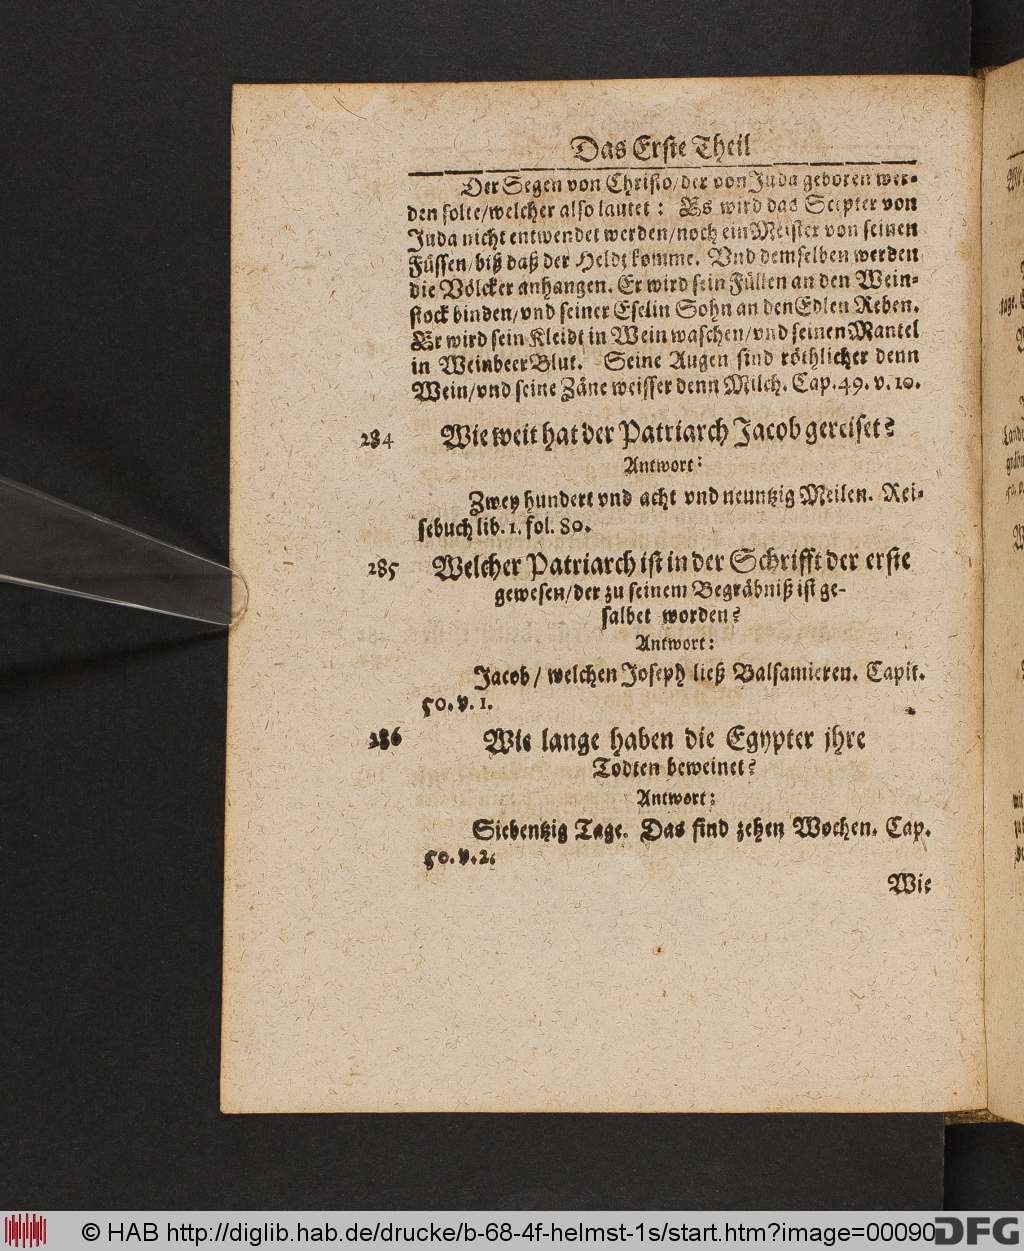 Das Erste Theil
Der Segen von Christo/der von Juda geboren wer-
den solte/welcher also lautet: Es wird das Scepter von
Juda nicht entwendet werden/noch ein Meister von seinen
Füssen/biß daß der Heldt komme. Vnd demselben werden
die Völcker anhangen. Er wird sein Füllen an den Wein-
stock binden/vnd seiner Eselin Sohn an den Edlen Reben.
Er wird sein Kleidt in Wein waschen/vnd seinen Mantel
in Weinbeer Blut. Seine Augen sind röthlicher denn
Wein/vnd seine Zäne weisser denn Milch. Cap. 49. v. 10.
284 Wie weit hat der Patriarch Jacob gereiset?
Antwort:
Zwey hundert vnd acht vnd neuntzig Meilen. Rei-
sebuch lib. 1. fol. 80.
285 Welcher Patriarch ist in der Schrifft der erste
gewesen/der zu seinem Begräbniß ist ge-
salbet worden?
Antwort:
Jacob/ welchen Joseph ließ Balsamieren. Capit.
50. v. 1.
286 Wie lange haben die Egypter jhre
Todten beweinet?
Antwort:
Siebentzig Tage. Das sind zehen Wochen. Cap.
50. v. 2.
Wie
© HAB http://diglib.hab.de/drucke/b-68-4f-helmst-1s/start.htm?image=00090
DFG